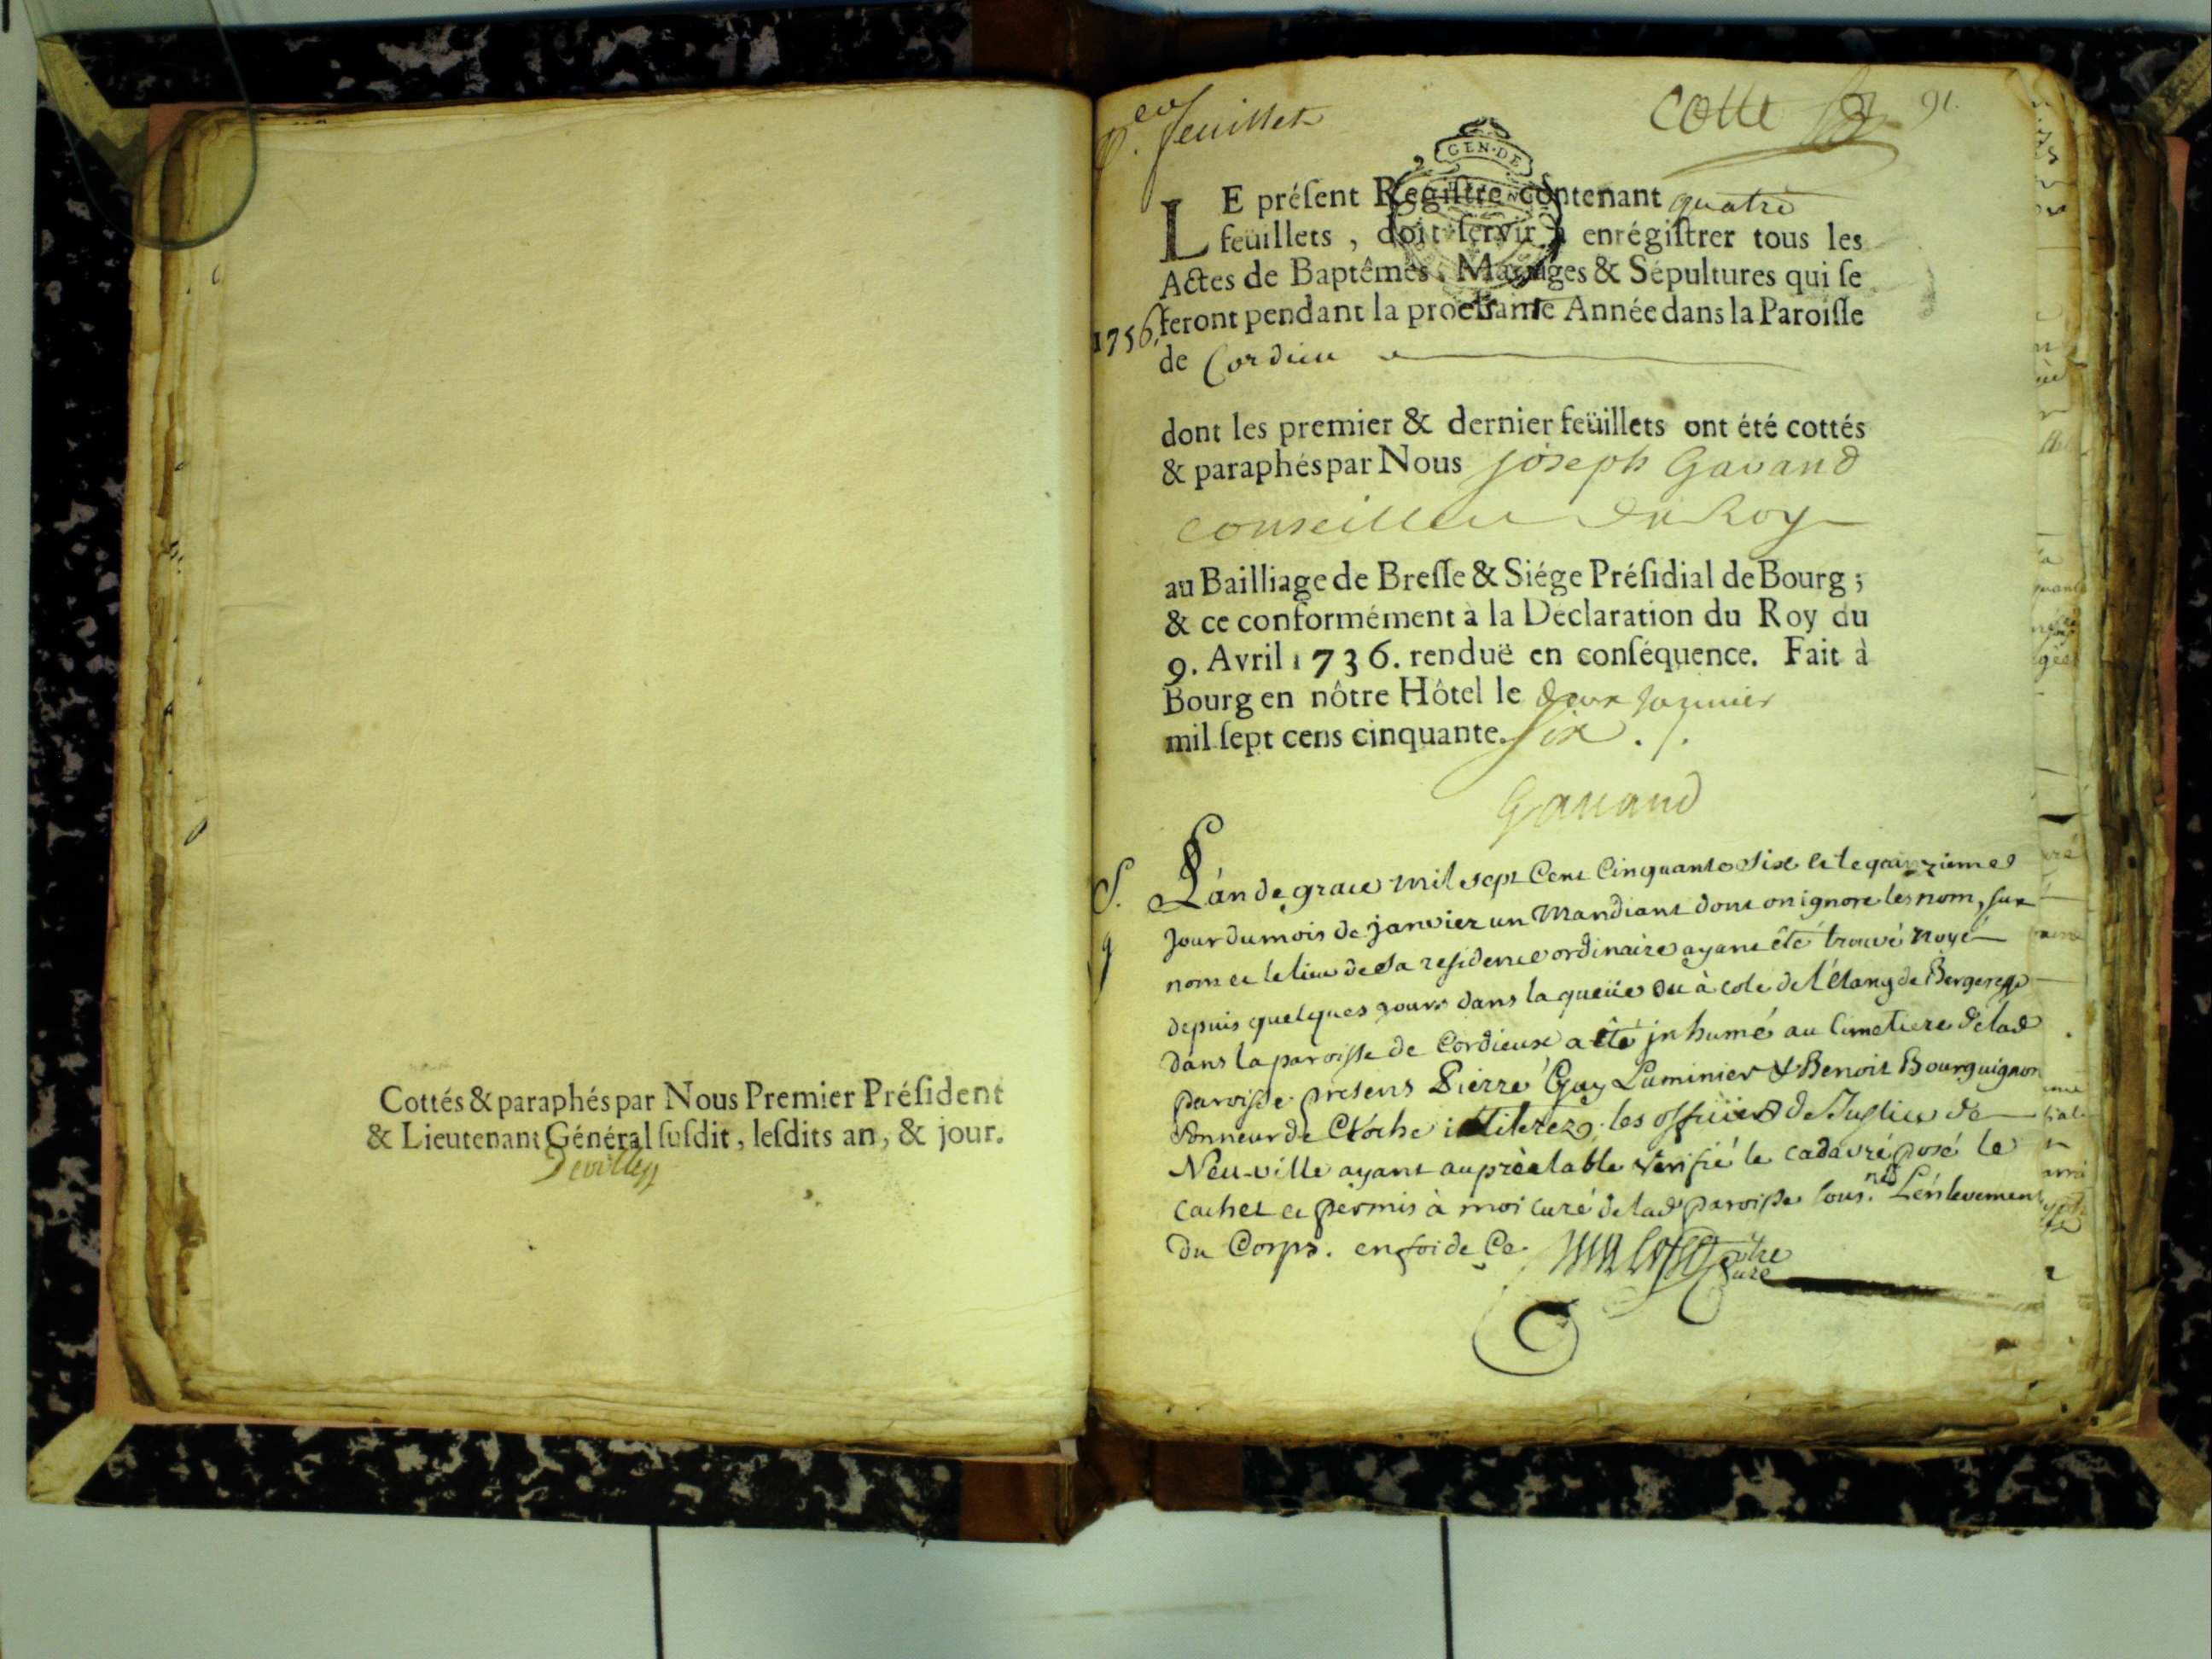 Cottés & paraphés par Nous Premier Préſident
& Lieutenant Général ſuſdit, leſdits an, & jour.
feuillet
Cotte
91.
GEN·DE
LE préſent Regiſtre contenant quatre
feüillets, doit ſervir à enrégiſtrer tous les
Actes de Baptêmes, Mariages & Sépultures qui ſe
1756. feront pendant la prochaine Année dans la Paroiſſe
de Cordieu
dont les premier & dernier feüillets ont été cottés
& paraphés par Nous joseph Gavand
conseiller du Roy
au Bailliage de Breſſe & Siége Préſidial de Bourg ;
& ce conformément à la Déclaration du Roy du
9. Avril 1736. renduë en conſéquence. Fait à
Bourg en nôtre Hôtel le deux Janvier
mil ſept cens cinquante. six ./.
Gavand
S. L'an de grace mil sept Cent Cinquante Six et le quinzieme
Jour du mois de janvier un Mandiant dont on ignore les nom, sur
nom et le lieu de sa residence ordinaire ayant été trouvé noyé
depuis quelques jours dans la queüe ou à coté de l'étang de
dans la paroisse de Cordieux a été jnhumé au Cimetiere de lad
paroisse presens Pierre Guy Luminier & Benoit Bourguignon
Sonneur de Cloche illiterez. les officiers de Justice de
Neu-ville ayant au prèalable verifié le cadavre posé le
cachet et permis à moi curé de lad paroisse sous.né L'enlevement
du Corps. en foi de Ce
ptre
Curé